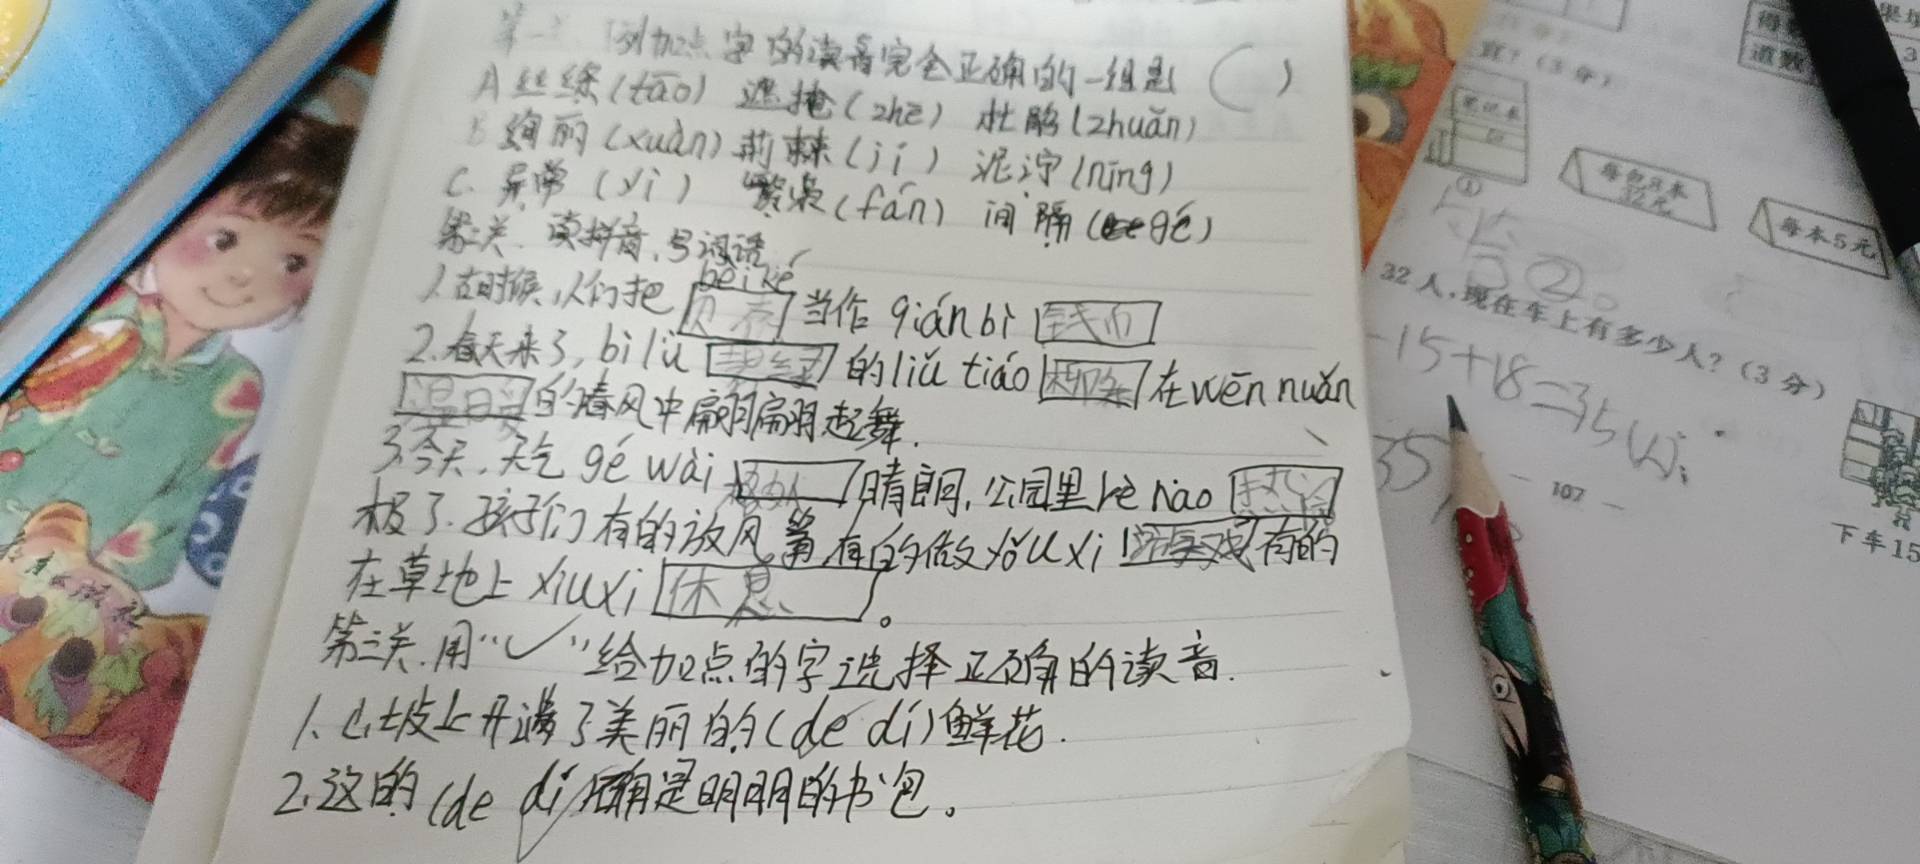 第一关.下列加点字的读音完全正确的一组是( )
A 丝绦(tāo) 遮掩(zhē) 杜鹃(zhuǎn)
B 绚丽(xuàn) 荆棘(jí) 泥泞(nīng)
C. 异常(yì) 繁衰(fán) 间隔(gé)
第二关.读拼音,写词语
bèi ké
1.古时候,人们把 贝壳 当作 qián bì 钱币
2.春天来了,bì lǜ 碧绿 的liǔ tiáo 柳条 在wēn nuǎn
温暖 的春风中翩翩起舞.
3.今天,天气 gé wài 格外 晴朗,公园里rè nào 热闹
极了.孩子们有的放风筝,有的做yóu xì 游戏 有的
在草地上 xiū xi 休息 。
第三关.用“✓”给加点的字选择正确的读音.
1.山坡上开满了美丽的(de dí)鲜花.
2.这的(de dí)确是明明的书包。
宜?(3分)
笔记本
①
每包日本
32元
每本5元
5 ②。
32人,现在车上有多少人?(3分)
-15+18=35(人)
35
— 107 —
下车15
道数